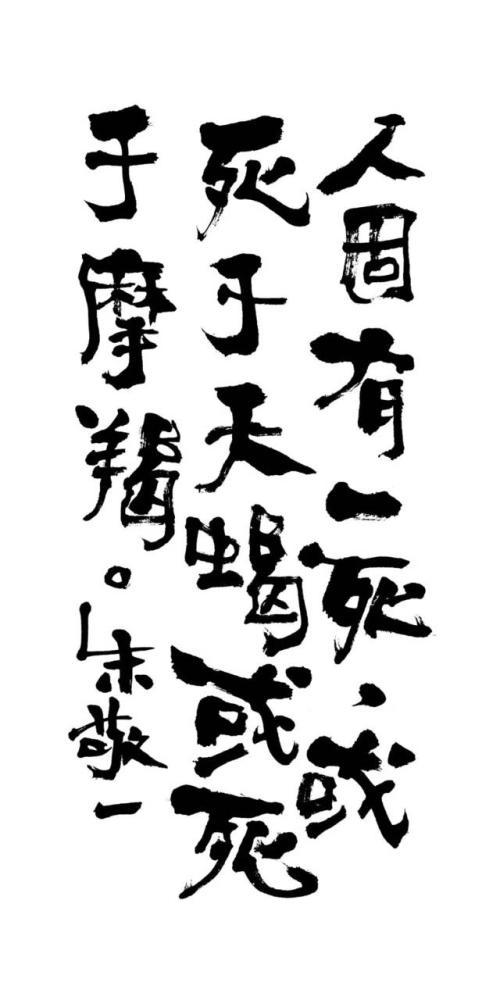 人固有一死,或
死于天蝎或死
于摩羯。朱敬一